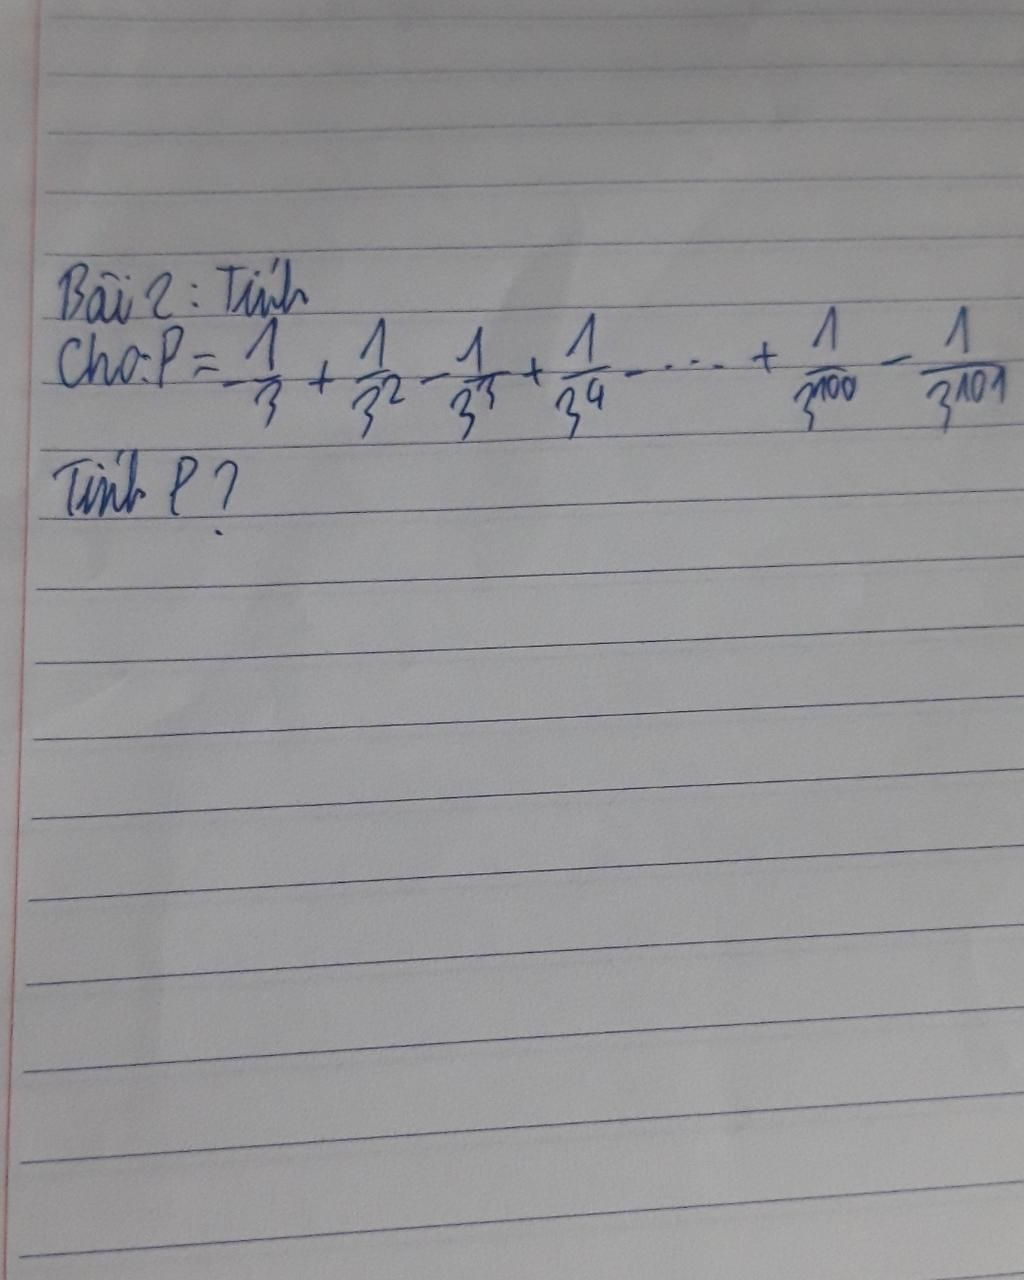 Bài 2: Tính
Cho: P = -1/3 + 1/3² - 1/3³ + 1/3⁴ - .... + 1/3¹⁰⁰ - 1/3¹⁰¹
Tính P?